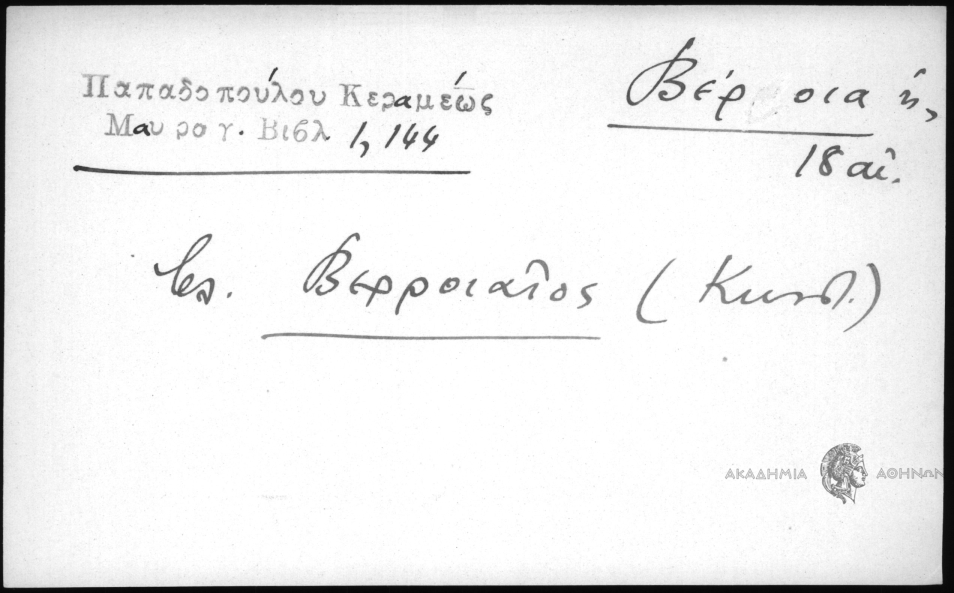 Παπαδοπούλου Κεραμέως
Μαυρογ. Βιβλ 1, 144
Βέροια ἡ,
18 αἰ.
Βερροιαῖος (Κωνστ.)
ΑΚΑΔΗΜΙΑ ΑΘΗΝΩΝ